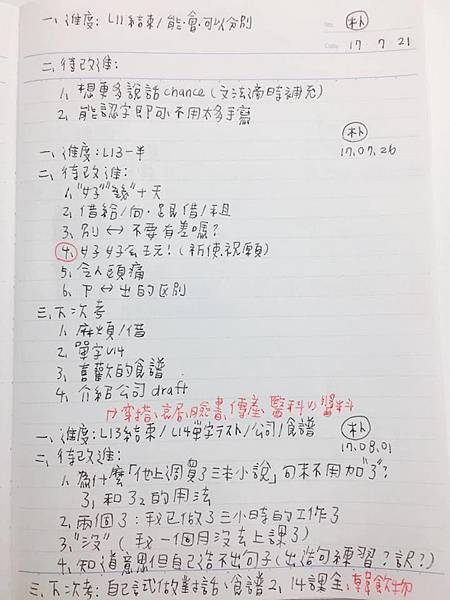 一、進度: L11 結束/能・會・可以分別
朴
No.
Date 17 7 21
二、待改進:
1、想更多說話chance(文法適時補充)
2、能認字即可、不用太多手寫
朴
17.07.26
一、進度:L13一半
二、待改進:
1、"好""幾"十天
2、借給/向・跟借/租
3、別 ↔ 不要有差嗎?
4、好好玩!(祈使.祝願)
5、令人頭痛
6、下 ↔ 出的区別
三、下次考
1、麻煩/借
2、單字L14
3、喜歡的食譜
4、介紹公司draft
穿搭、臉書、傳產、醫科 vs 醬料
一、進度:L13結束/L14單字テスト/公司/食譜
朴
17.08.01
二、待改進:
1、為什麼「他上週買了三本小說」句末不用加"了"?
了1 和了2 的用法
2、兩個了:我已做了三小時的工作了
3、"沒"(我一個月沒去上課了)
4、知道意思但自己造不出句子(出造句練習?訳?)
三、下次考:自己試做對話、食譜2、14課全、韓飲物